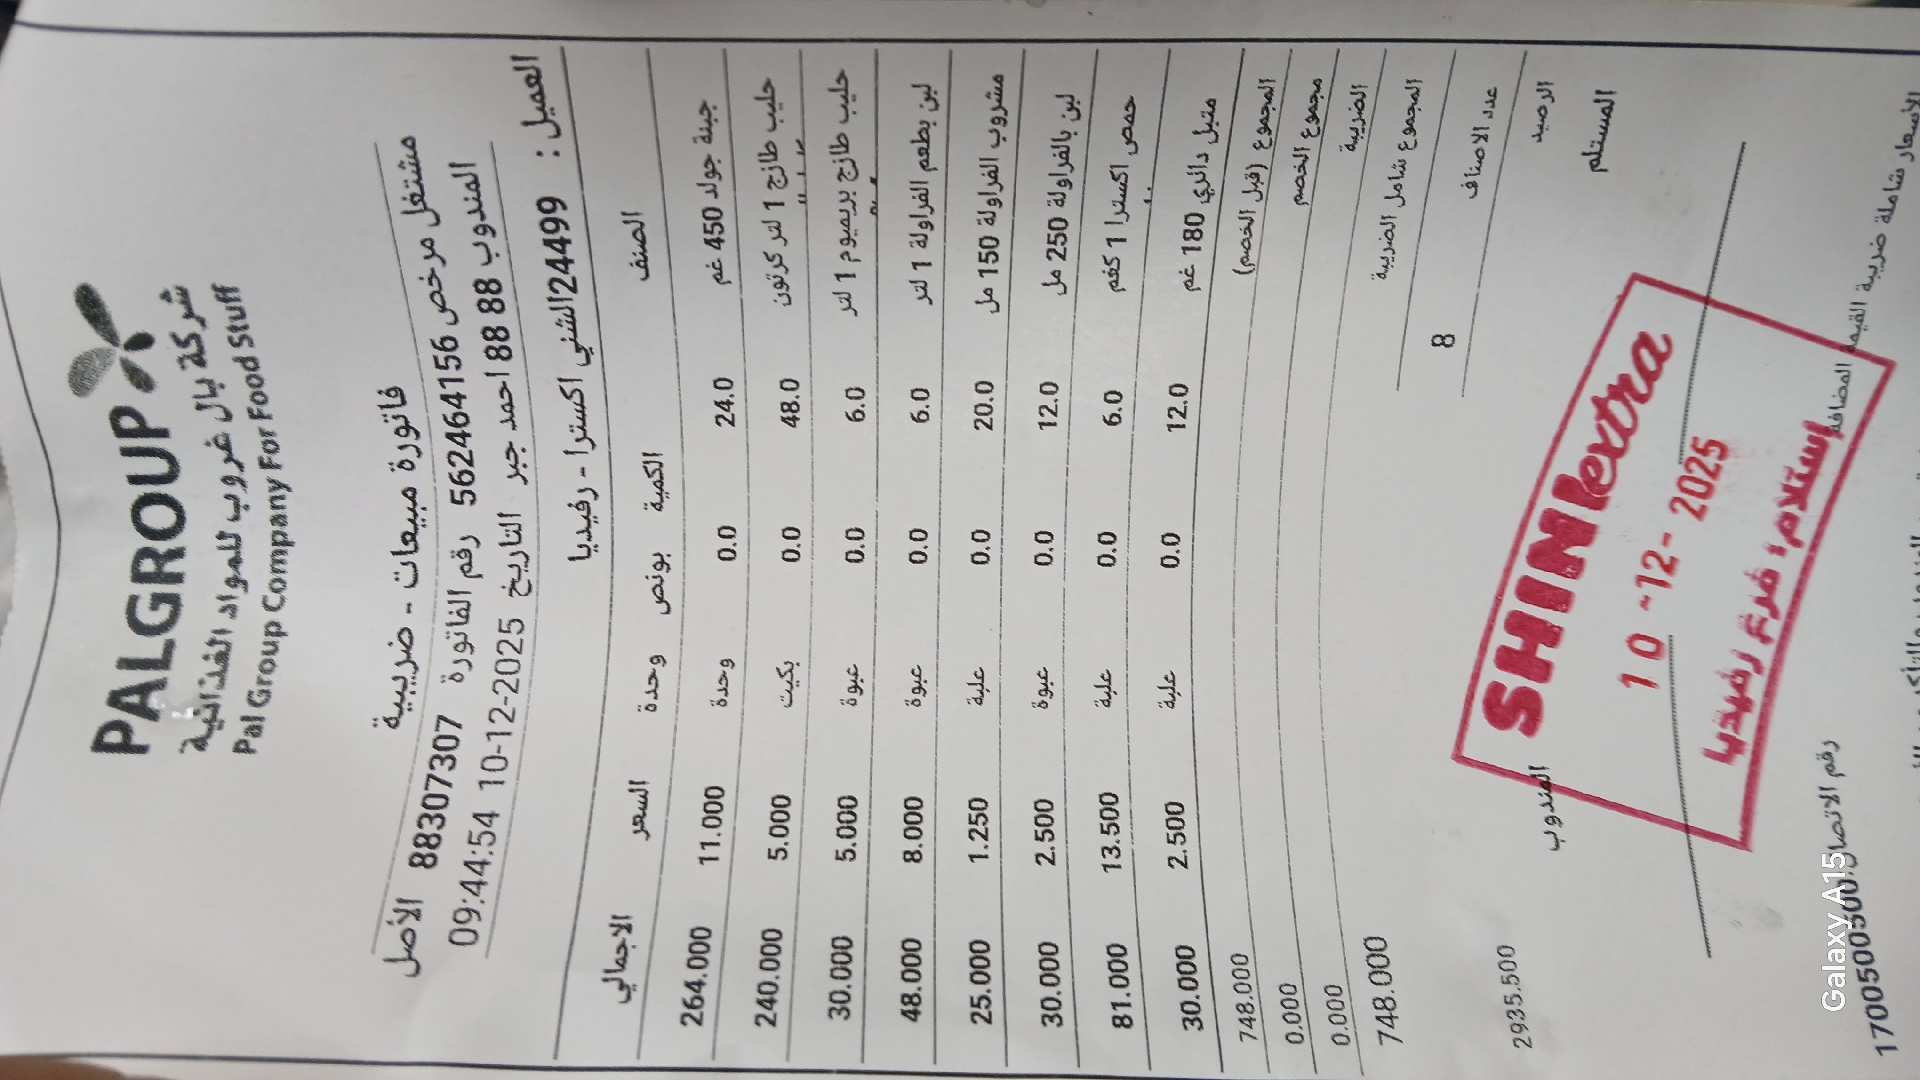 PALGROUP
شركة بال غروب للمواد الغذائية
Pal Group Company For Food Stuff
فاتورة مبيعات - ضريبية
مشتغل مرخص 562464156 رقم الفاتورة 88307307 الأصل
المندوب 88 88 احمد جبر التاريخ 10-12-2025 09:44:54
العميل : 24499الشني اكسترا - رفيديا
الصنف الكمية بونص وحدة السعر الاجمالي
جبنة جولد 450 غم 24.0 0.0 وحدة 11.000 264.000
حليب طازج 1 لتر كرتون 48.0 0.0 بكيت 5.000 240.000
حليب طازج بريميوم 1 لتر 6.0 0.0 عبوة 5.000 30.000
لبن بطعم الفراولة 1 لتر 6.0 0.0 عبوة 8.000 48.000
مشروب الفراولة 150 مل 20.0 0.0 علبة 1.250 25.000
لبن بالفراولة 250 مل 12.0 0.0 عبوة 2.500 30.000
حمص اكسترا 1 كغم 6.0 0.0 علبة 13.500 81.000
متبل دائري 180 غم 12.0 0.0 علبة 2.500 30.000
المجموع (قبل الخصم) 748.000
مجموع الخصم 0.000
الضريبة 0.000
المجموع شامل الضريبة 748.000
عدد الاصناف 8
الرصيد 2935.500
المستلم المندوب
SHINIextra
10-12-2025
إستلام: فرع رفيديا
الأسعار شاملة ضريبة القيمة المضافة
رقم الاتصال: 1700500500
Galaxy A15